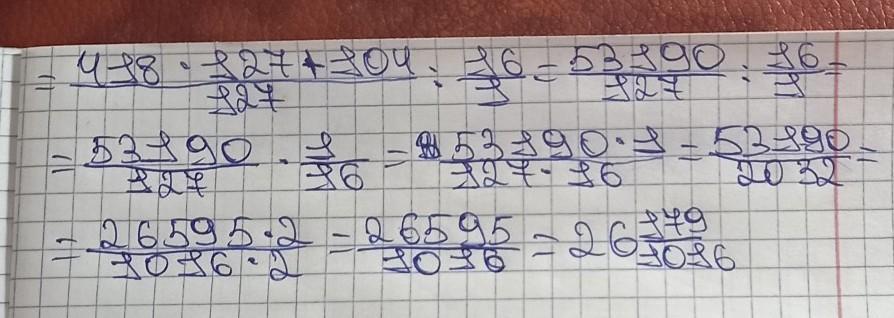 = (418 · 127 + 104)/127 : 16/1 = 53190/127 : 16/1 =
= 53190/127 · 1/16 = (53190 · 1)/(127 · 16) = 53190/2032 =
= (26595 · 2)/(1016 · 2) = 26595/1016 = 26 179/1016